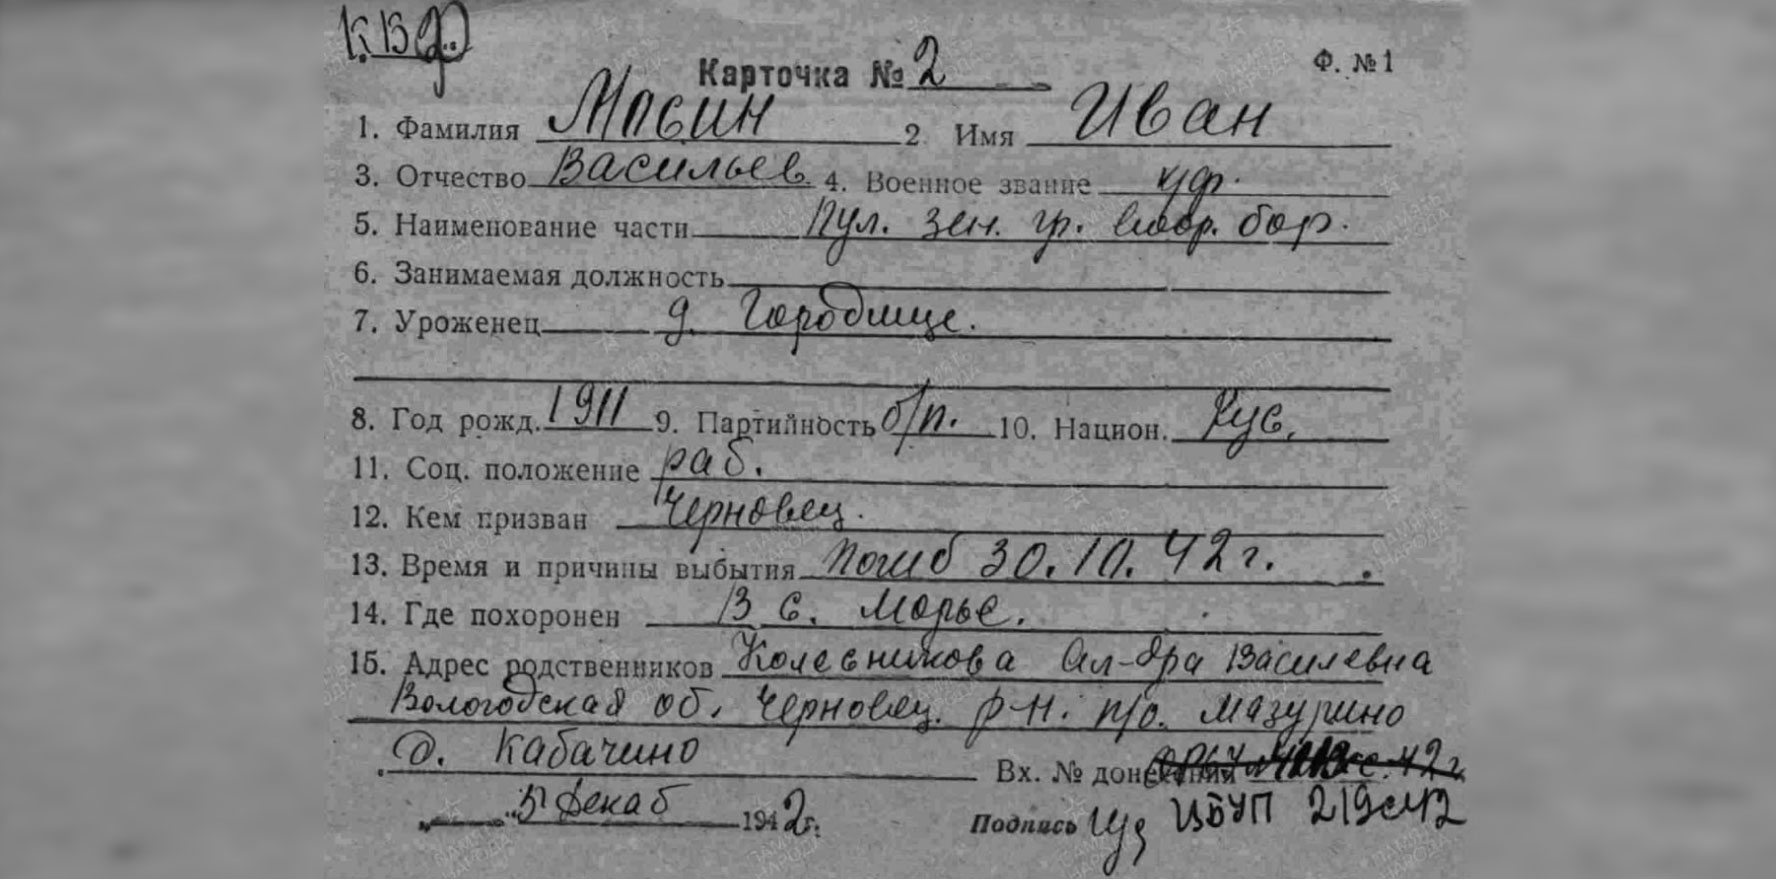 Карточка № 2 Ф. №1
1. Фамилия Мосин 2 Имя Иван
3. Отчество Васильев. 4. Военное звание
5. Наименование части Пул. зен. гр. бор.
6. Занимаемая должность
7. Уроженец д. Городище.
8. Год рожд. 1911 9. Партийность б/п. 10. Национ. Рус.
11. Соц. положение раб.
12. Кем призван Черновец.
13. Время и причины выбытия погиб 30.10.42 г.
14. Где похоронен В с. Морье.
15. Адрес родственников Колесникова Ал-дра Василевна
Вологодская об. Черновец. р-н. п/о. Мазурино
д. Кабачино
Вх. № донесения
5 Декаб 1942 г.
Подпись ЦБУП